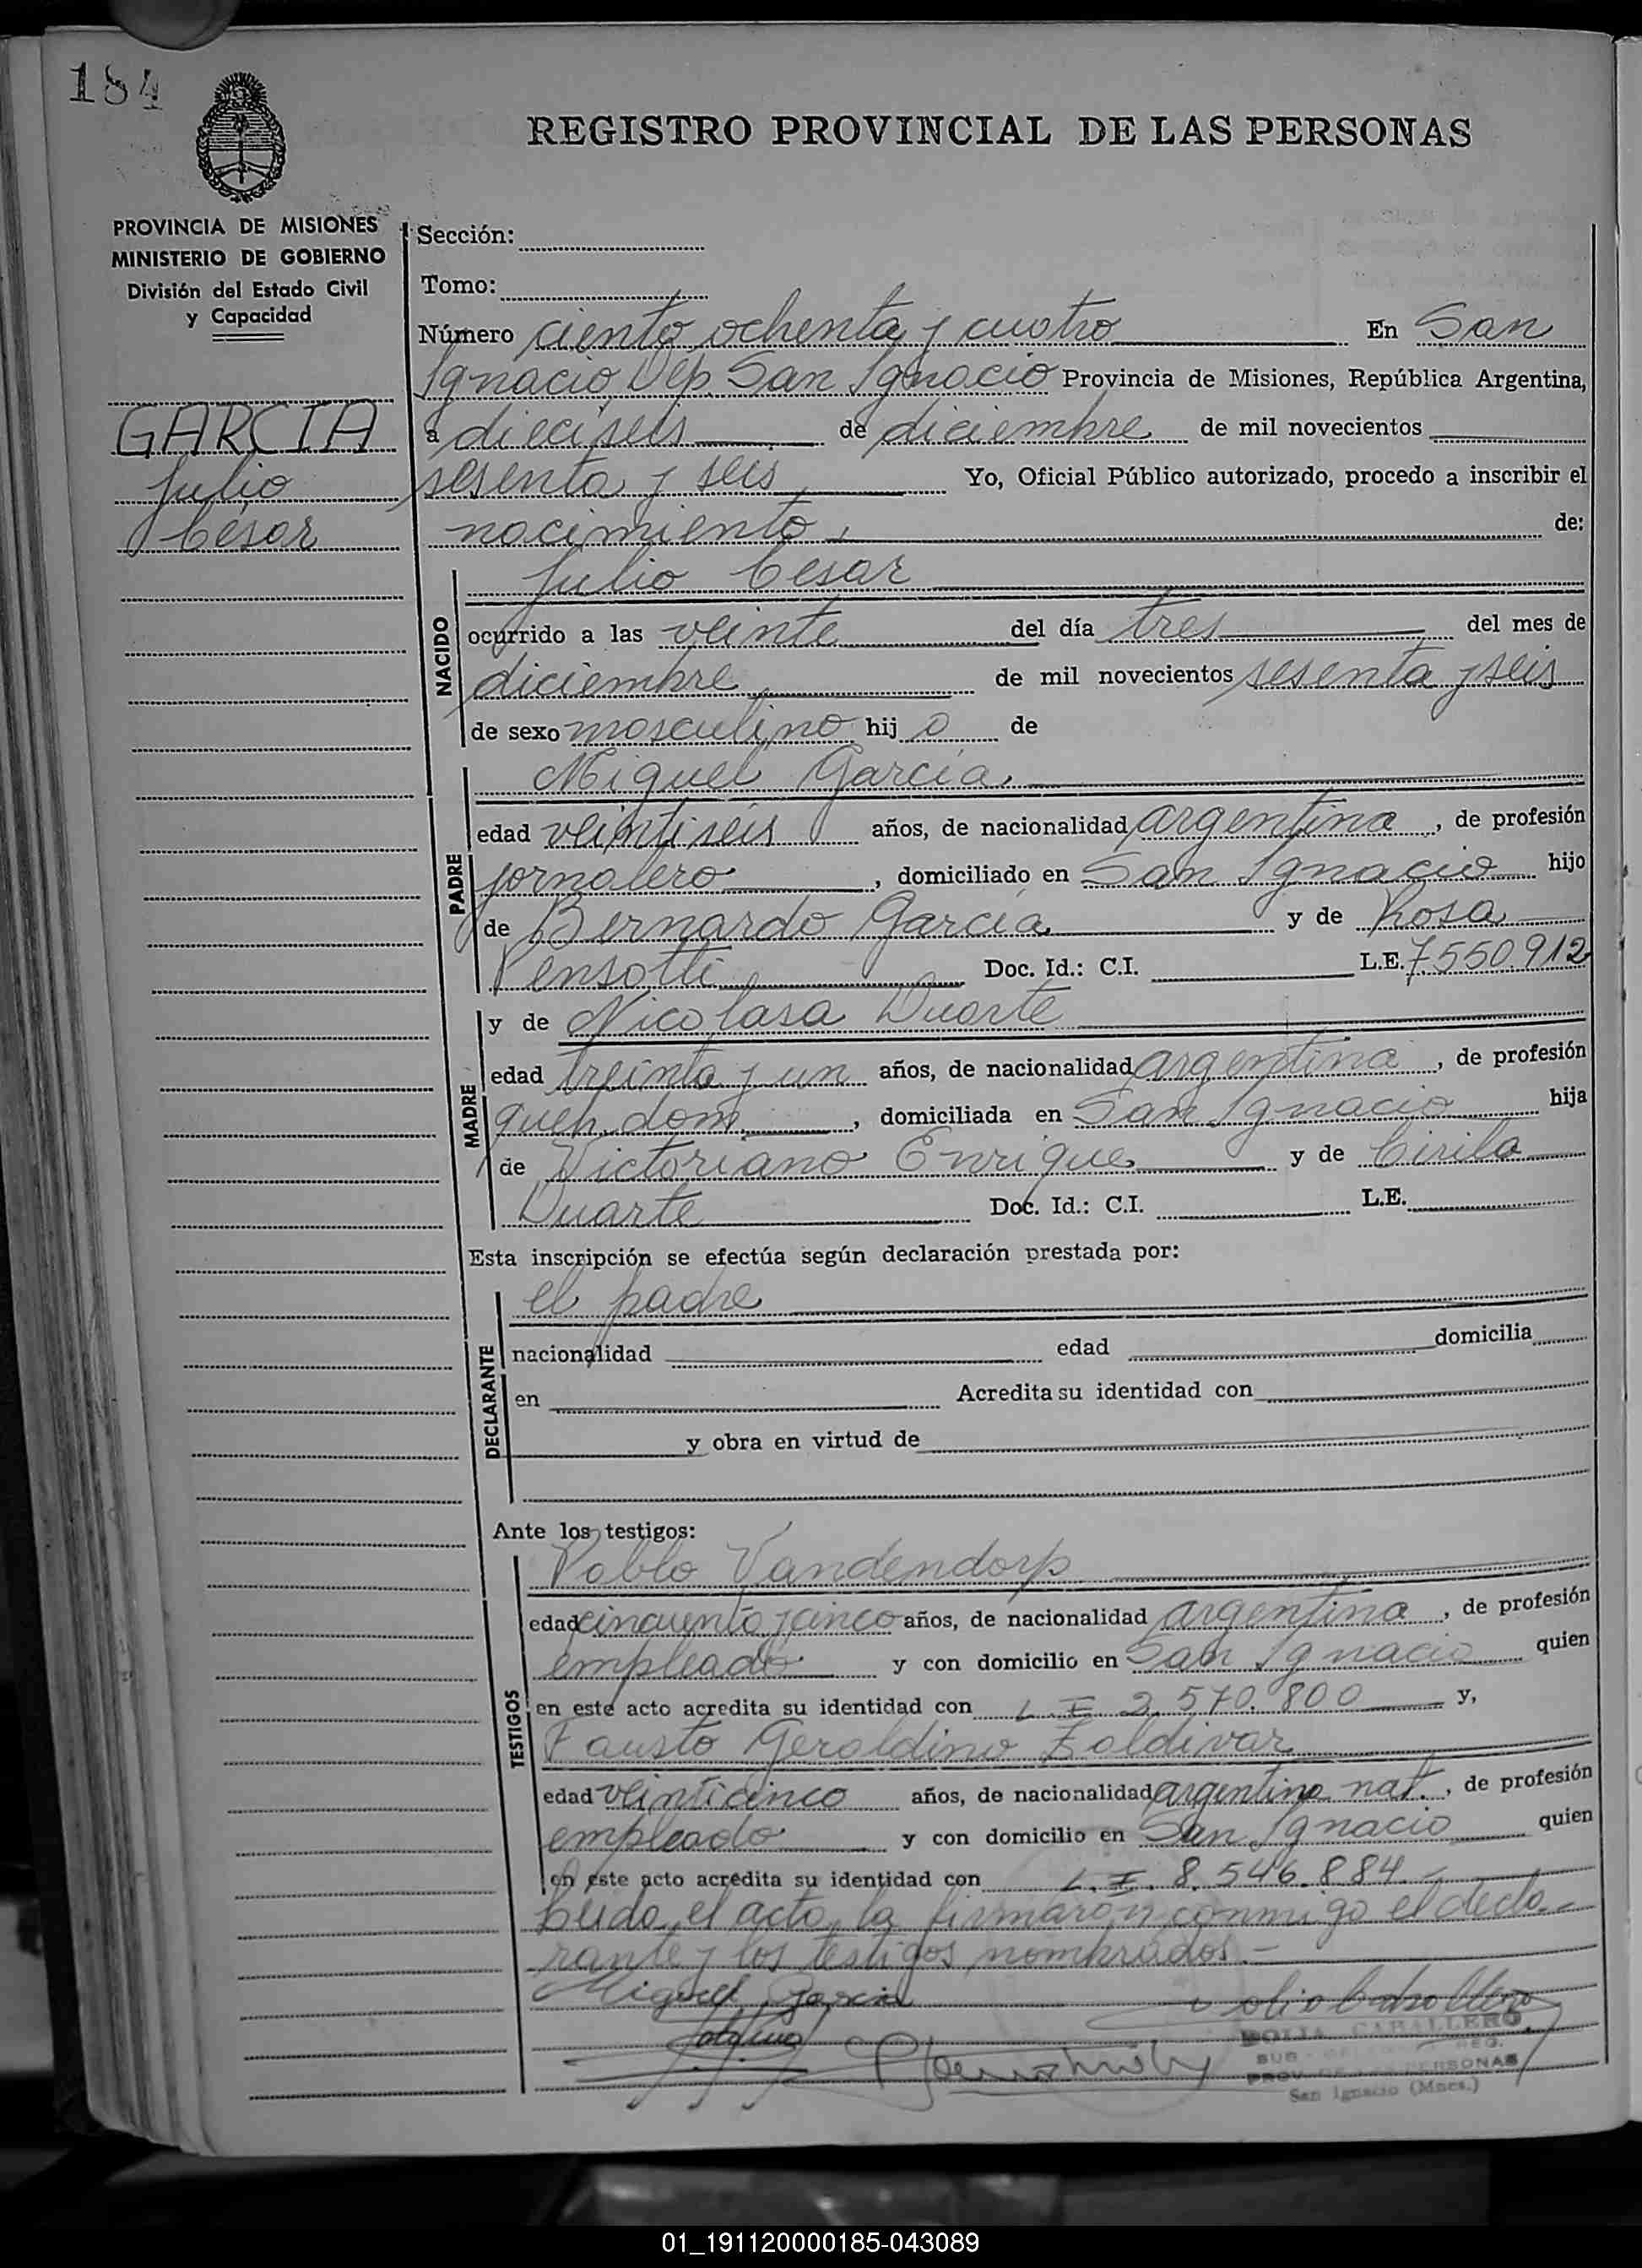 184
REGISTRO PROVINCIAL DE LAS PERSONAS
PROVINCIA DE MISIONES
MINISTERIO DE GOBIERNO
División del Estado Civil
y Capacidad
GARCIA
Julio
César
Sección:
Tomo:
Número ciento ochenta y cuatro En San
Ignacio, Dep. San Ignacio Provincia de Misiones, República Argentina,
a dieciseis de diciembre de mil novecientos
sesenta y seis, Yo, Oficial Público autorizado, procedo a inscribir el
nacimiento, de:
NACIDO
Julio Cesar
ocurrido a las veinte del día tres del mes de
diciembre de mil novecientos sesenta y seis
de sexo masculino hij o de
PADRE
Miguel García
edad veintiseis años, de nacionalidad argentina, de profesión
jornalero, domiciliado en San Ignacio hijo
de Bernardo García y de Rosa
Pensotti Doc. Id.: C.I. L.E. 7550912
MADRE
y de Nicolasa Duarte
edad treinta y un años, de nacionalidad argentina, de profesión
queh. dom., domiciliada en San Ignacio hija
de Victoriano Enrique y de Cirila
Duarte Doc. Id.: C.I. L.E.
Esta inscripción se efectúa según declaración prestada por:
DECLARANTE
el padre
nacionalidad edad domicilia
en Acredita su identidad con
y obra en virtud de
Ante los testigos:
TESTIGOS
Pablo Vandendorp
edad cincuenta y cinco años, de nacionalidad argentina, de profesión
empleado y con domicilio en San Ignacio quien
en este acto acredita su identidad con L. E 2.570.800 y,
Fausto Geraldino Zaldivar
edad veinticinco años, de nacionalidad argentino nat., de profesión
empleado y con domicilio en San Ignacio quien
en este acto acredita su identidad con L. E. 8.546.884.-
Leida el acta, la firmaron conmigo el decla-
rante y los testigos nombrados.-
Miguel Garcia
CABALLERO
SUB - REG.
PROV. DE LAS PERSONAS
San Ignacio (Mnes.)
01_191120000185-043089